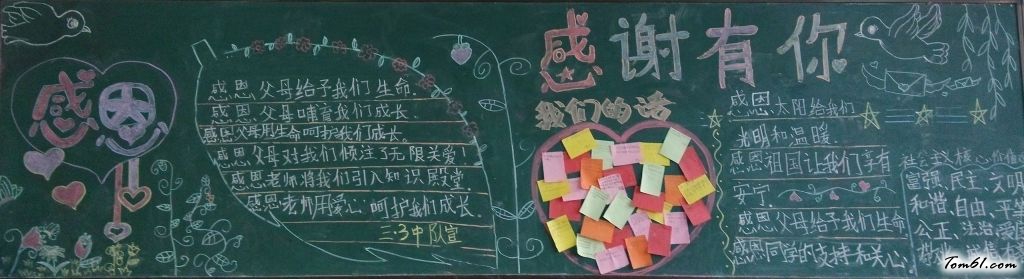 感恩
感恩父母给予我们生命.
感恩父母哺育我们成长.
感恩父母用生命呵护我们成长.
感恩父母对我们倾注了无限关爱!
感恩老师将我们引入知识殿堂.
感恩老师用爱心呵护我们成长.
三.3中队宣
感谢有你
我们的话
感恩太阳给我们
光明和温暖.
感恩祖国让我们享有
安宁.
感恩父母给予我们生命
感恩同学的支持和关心.
社会主义核心价值
富强.民主.文明
和谐.自由.平等
公正.法治.爱国
Tom61.com